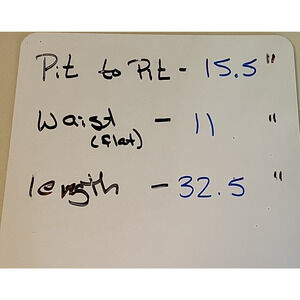 Pit to Pit - 15.5"
Waist - 11 "
(flat)
length - 32.5 "